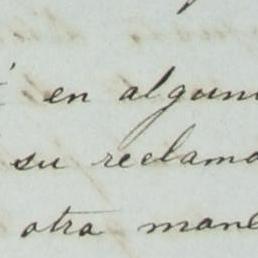 en algun
su reclamo
otra mane